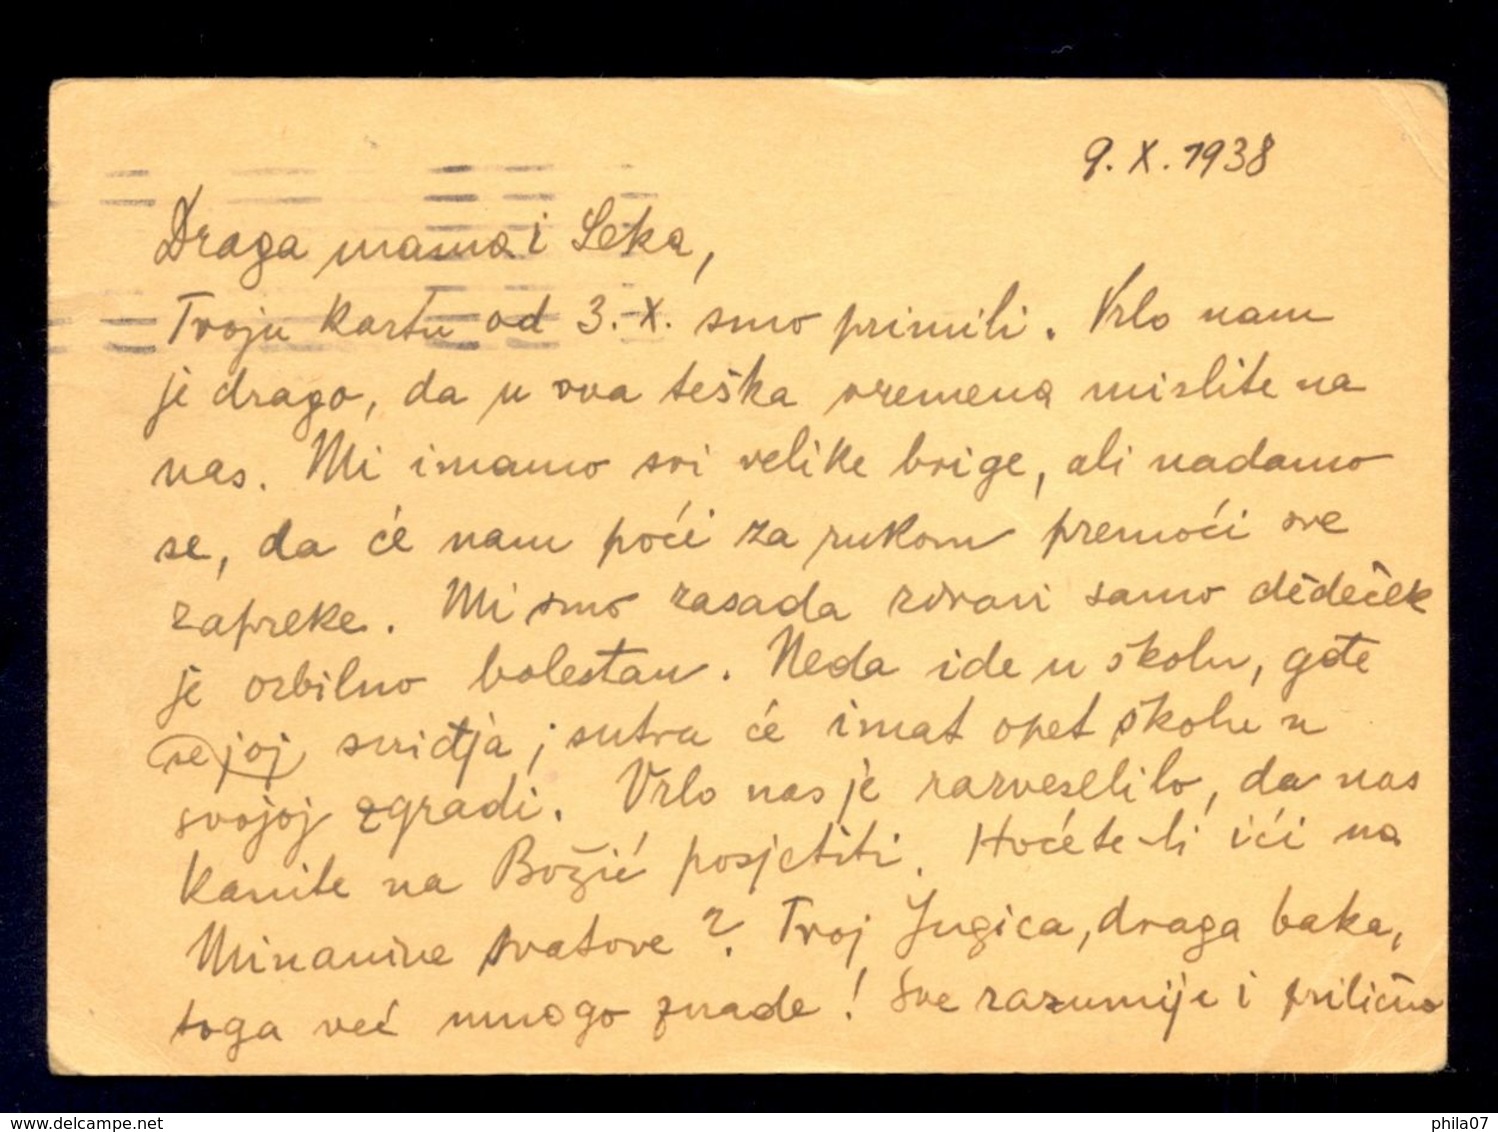 9. X. 1938
Draga mama i Seka,
Tvoju kartu od 3. X. smo primili. Vrlo nam
je drago, da u ova teška vremena mislite na
nas. Mi imamo svi velike brige, ali nadamo
se, da će nam poći za rukom premoći sve
zapreke. Mi smo zasada zdravi samo dědeček
je ozbilno bolestan. Neda ide u školu, gdje
se joj svidja; sutra će imat opet školu u
svojoj zgradi. Vrlo nas je razveselilo, da nas
kanite na Božić posjetiti. Hoćete-li ići na
svatove? Tvoj Jugica, draga baka,
toga već mnogo znade! Sve razumije i prilično
www.delcampe.net
phila07